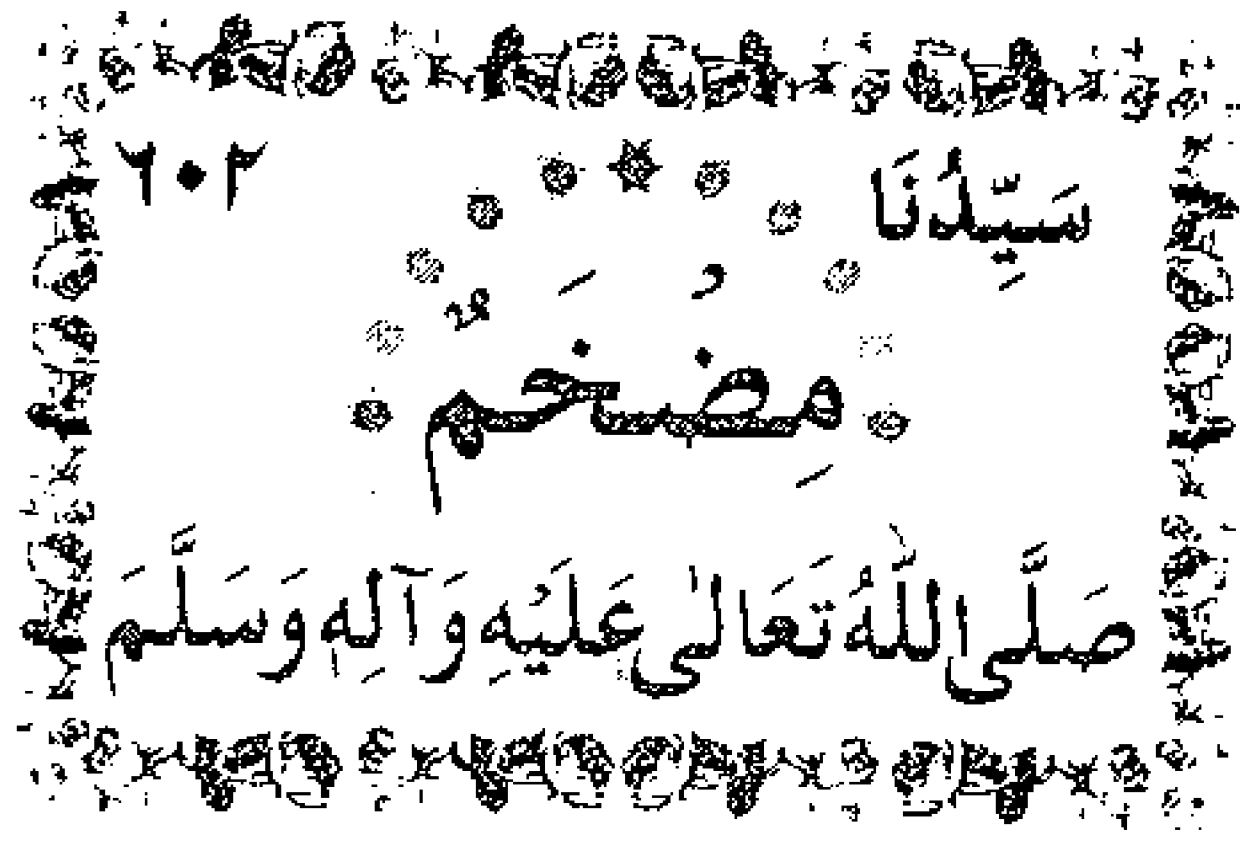 سَيِّدُنَا ٦٠٢
مِضْخَمٌ
صَلَّى اللّٰهُ تَعَالٰى عَلَيْهِ وَآلِهٖ وَسَلَّمَ